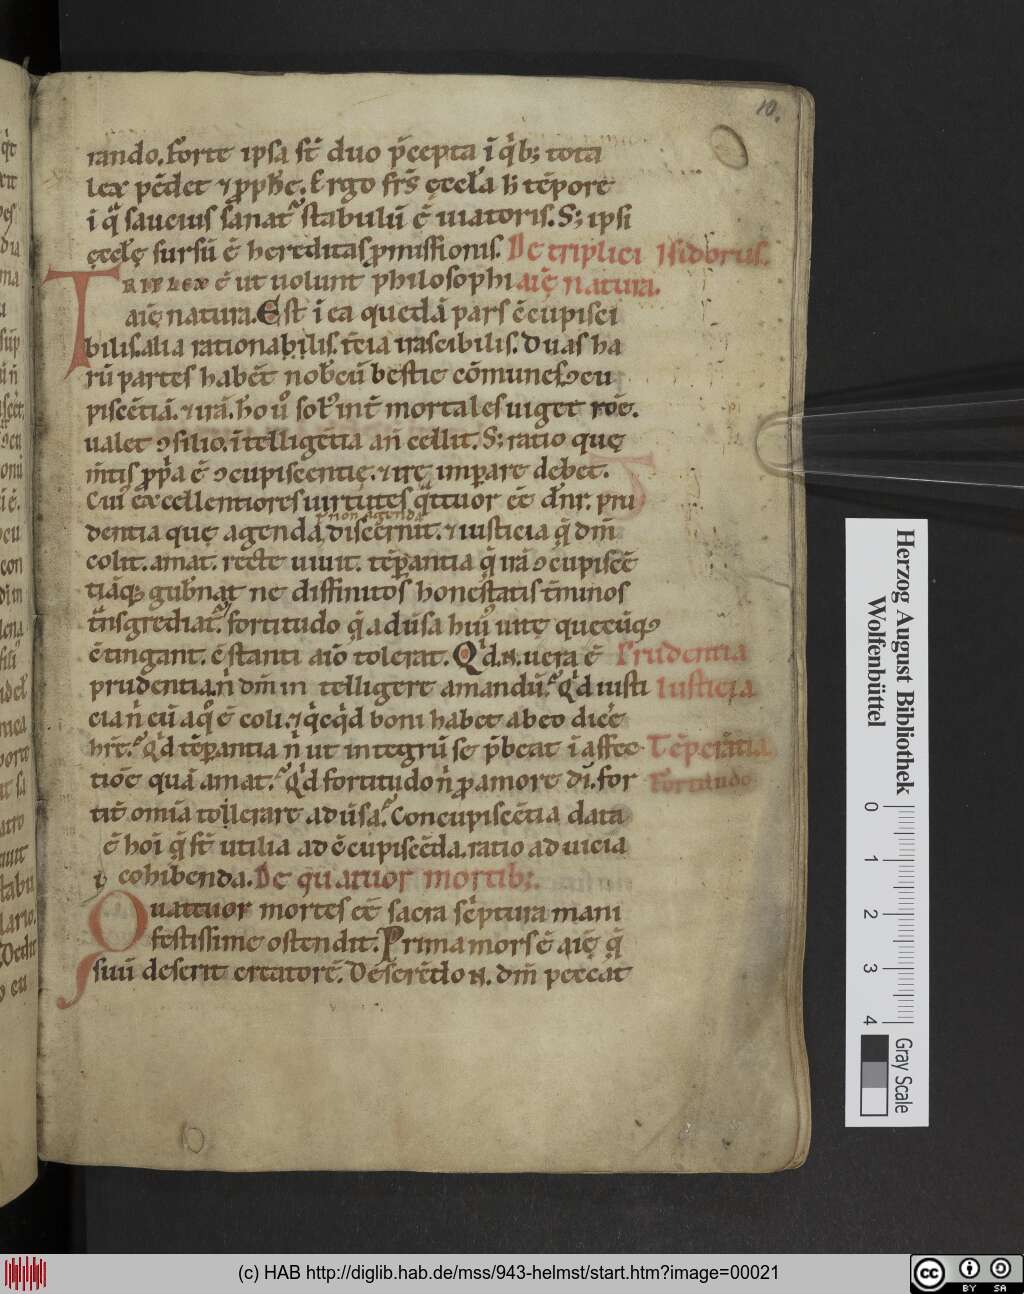 10.
rando. Forte ipsa st̄ duo p̄cepta ī q̇b; tota
lex pēdet ⁊ ꝓph̄ę. Ergo fr̄s ęccƚa h̄ tēpore
i q̄ saucius sanat᷒ stabulū ē uiatoris. S; ipsi
ęccƚę sursū ē hereditas ꝓmissionis. De triplici Isidorus.
TRIPLEX ē ut uolunt philosophi aīę natura.
aīę natura. Est ī ea quedā pars ↄcupisci
bilis. alia rationabilis. t̄cia irascibilis. Duas ha
rū partes habēt nob̄cū bestie cōmunes. ↄcu
piscētiā. ⁊ irā. hoū sol᷒ int̄ mortales uiget roē.
ualet ↄsilio. ītelligētia añ cellit. S; ratio quę
m̄tis ꝓp̄a ē ↄcupiscentię. ⁊ irę imꝑare debet.
Cui᷒ excellentiores uirtutes q̄ttuor eē dn̄r. pru
t non agenda
dentia que agenda discernit. ⁊ iusticia q̄ dm̄
colit. amat. recte uiuit. tēꝑantia q̄ irā ↄcupiscē
tiāq; gub̄nat ne diffinitos honestatis t̄minos
t̄nsgrediat᷒. fortitudo q̄ adūsa hui᷒ uitę quecūq;
ↄtingant. ↄstanti aīo tolerat. Qd̄. N. uera ē Prudentia
prudentia. n̄ dm̄ in telligere amandū. Qd̄ iusti Iusticia
cia n̄ eū a q̊ ē coli. ⁊ q̇cq̇d boni habet ab eo dicere
hr̄t. Qd̄ tēꝑantia n̄ ut integrū se p̄beat ī affec Tēperātia.
tiōe quā amat. Qd̄ fortitudo n̄ ꝓ amore dī. for Fortitudo
tit̄ omīa tollerare adūsa. Concupiscētia data
ē hoī q̄ st̄ utilia ad ↄcupiscēda. ratio ad uicia
cohibenda. De quatuor mortib;.
Quattuor mortes eē sacra sc̄ptura mani
festissime ostendit. Prima mors ē aīę q̄
suū deserit creatorē. Deserēdo N. dm̄ peccat
Herzog August Bibliothek
Wolfenbüttel
0 1 2 3 4
Gray Scale
(c) HAB http://diglib.hab.de/mss/943-helmst/start.htm?image=00021
cc BY SA